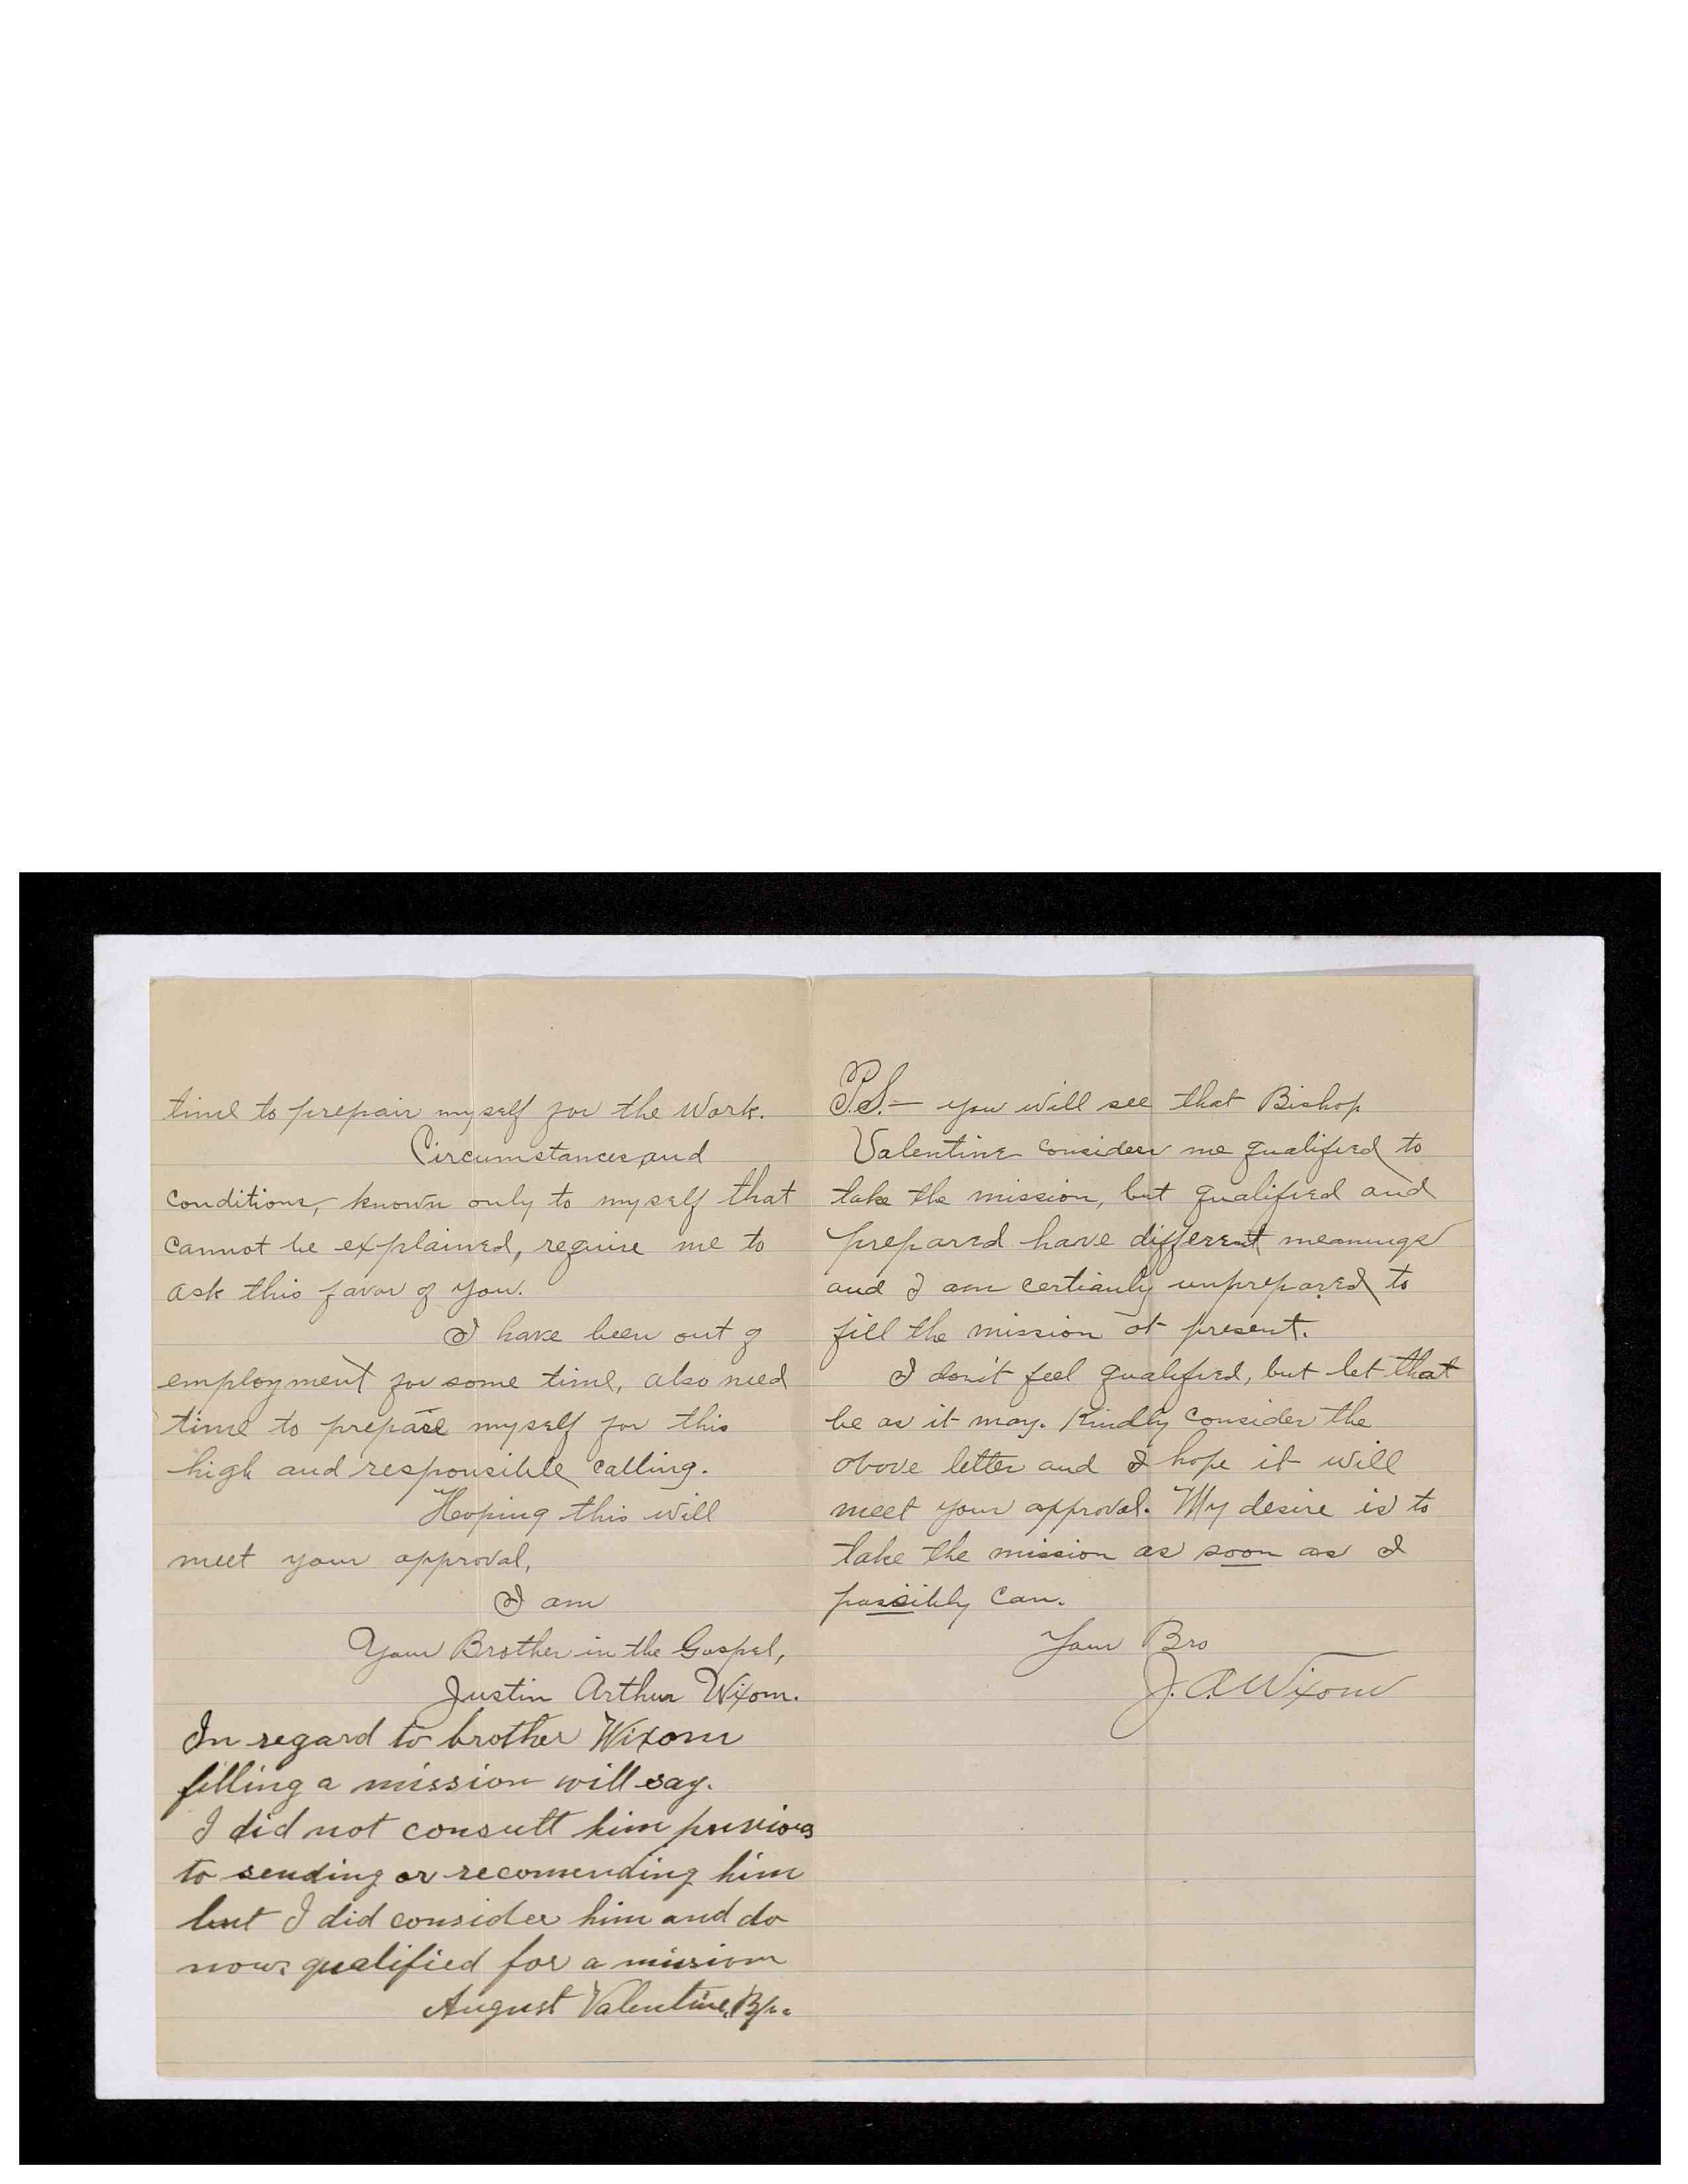 time to prepair myself for the work.
Circumstances and
conditions, known only to myself that
cannot be explained, require me to
ask this favor of you.
I have been out of
employment for some time, also need
time to prepare myself for this
high and responsible calling.
Hoping this will
meet your approval,
I am
Your Brother in the Gospel,
Justin Arthur Wixom.
In regard to brother Wixom
filling a mission will say.
I did not consult him previous
to sending or recomending him
but I did consider him and do
now qualified for a mission
August Valentine, Bp.
P.S.— you will see that Bishop
Valentine considers me qualified to
take the mission, but qualified and
prepared have different meanings
and I am certianly unprepared to
fill the mission at present.
I don't feel qualified, but let that
be as it may. Kindly consider the
above letter and I hope it will
meet your approval. My desire is to
take the mission as soon as I
possibly can.
Your Bro
J. A. Wixom